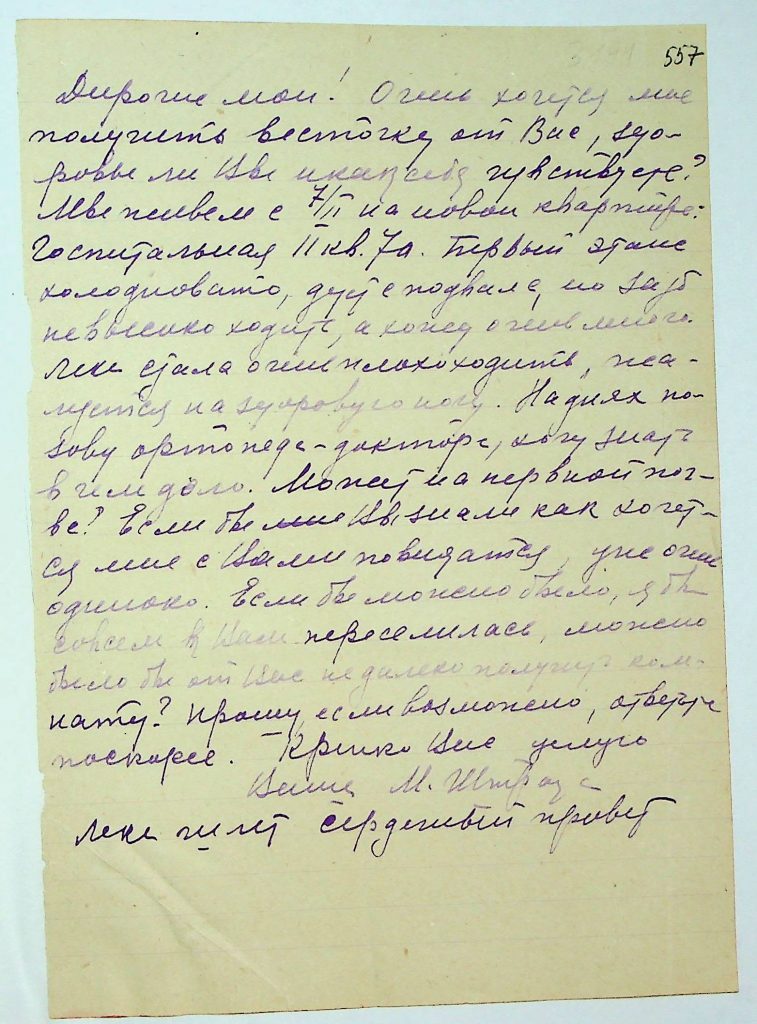 557
Дорогие мои! Очень хочется мне
получить весточку от Вас, здо-
ровы ли Вы и как себя чувствуете?
Мы живем с 7/II на новой квартире:
Госпитальная II кв. 7а. Первый этаж
холодновато, дует с подвала, но зато
не высоко ходить, а хожу очень много.
Леке стала очень плохо ходить, жа-
луется на здоровую ногу. На днях по-
зову ортопеда-доктора, хочу знать
в чем дело. Может на нервной поч-
ве? Если бы Вы знали как хочет-
ся мне с Вами повидаться, уже очень
одиноко. Если бы можно было, я бы
совсем к Вам переселилась, можно
было бы от Вас недалеко получить ком-
нату? Прошу, если возможно, ответьте
поскорее. Крепко Вас целую
Ваша М. Штраус
Леке шлет сердечный привет